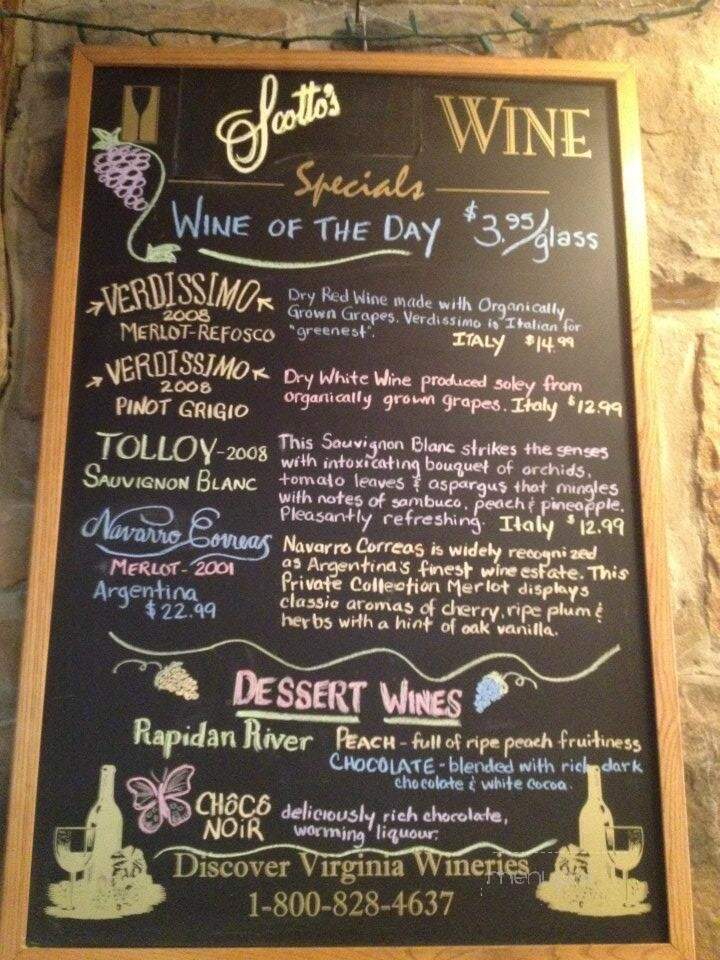 Scotto's WINE
Specials
WINE OF THE DAY $3.95/glass
VERDISSIMO
2008
MERLOT-REFOSCO
Dry Red Wine made with Organically
Grown Grapes. Verdissimo is Italian for
"greenest".
ITALY $14.99
VERDISSIMO
2008
PINOT GRIGIO
Dry White Wine produced soley from
organically grown grapes. Italy $12.99
TOLLOY-2008
SAUVIGNON BLANC
This Sauvignon Blanc strikes the senses
with intoxicating bouquet of orchids,
tomato leaves & aspargus that mingles
with notes of sambuco, peach & pineapple.
Pleasantly refreshing. Italy $12.99
Navarro Correas
MERLOT-2001
Argentina
$22.99
Navarro Correas is widely recognized
as Argentina's finest wine estate. This
Private Collection Merlot displays
classic aromas of cherry, ripe plum &
herbs with a hint of oak vanilla.
DESSERT WINES
Rapidan River PEACH - full of ripe peach fruitiness
CHOCOLATE - blended with rich dark
chocolate & white cocoa.
CHôCô
NOIR
deliciously rich chocolate,
warming liquour.
Discover Virginia Wineries
1-800-828-4637